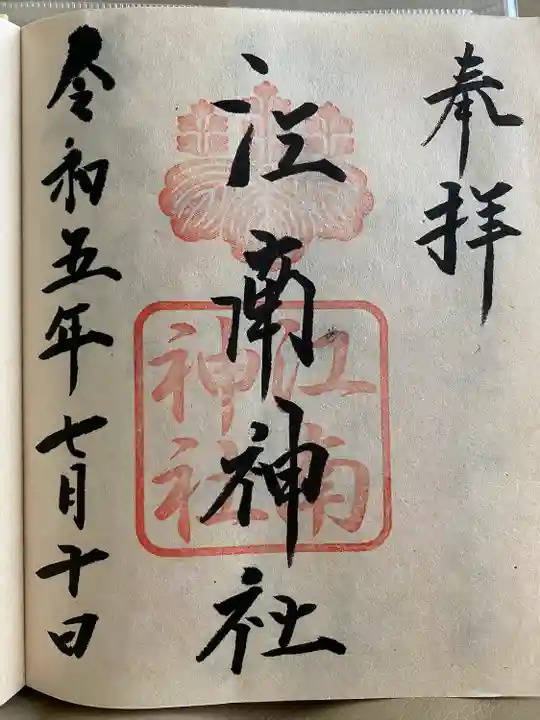 奉拝
江南神社
江南
神社
令和五年七月十日